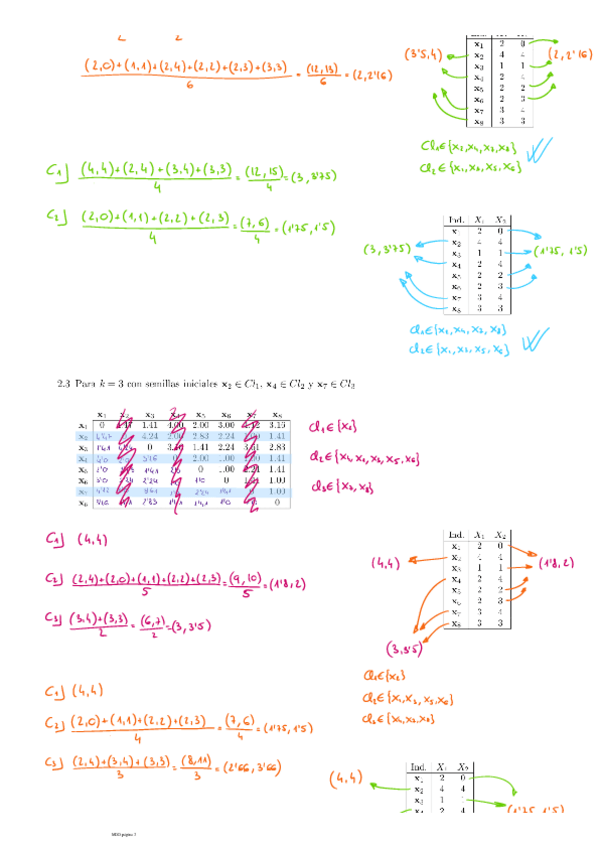 (2,0)+(1,1)+(2,4)+(2,2)+(2,3)+(3,3) / 6 = (12,13) / 6 = (2,2'16)
X₁ 2 0
X₂ 4 4
X₃ 1 1
X₄ 2 4
X₅ 2 2
X₆ 2 3
X₇ 3 4
X₈ 3 3
(3'5,4)
(2,2'16)
Cl₁∈{x₂,x₄,x₇,x₈}
Cl₂∈{x₁,x₃,x₅,x₆}
C₁] (4,4)+(2,4)+(3,4)+(3,3) / 4 = (12,15) / 4 = (3,3'75)
C₂] (2,0)+(1,1)+(2,2)+(2,3) / 4 = (7,6) / 4 = (1'75,1'5)
Ind. X₁ X₂
x₁ 2 0
x₂ 4 4
x₃ 1 1
x₄ 2 4
x₅ 2 2
x₆ 2 3
x₇ 3 4
x₈ 3 3
(3,3'75)
(1'75,1'5)
Cl₁∈{x₂,x₄,x₇,x₈}
Cl₂∈{x₁,x₃,x₅,x₆}
2.3 Para k = 3 con semillas iniciales x₂ ∈ Cl₁, x₄ ∈ Cl₂ y x₇ ∈ Cl₃
x₁ x₂ x₃ x₄ x₅ x₆ x₇ x₈
x₁ 0 1.41 4.00 2.00 3.00 3.16
x₂ 4.24 2.83 2.24 1.41
x₃ 0 1.41 2.24 2.83
x₄ 1.41
x₅ 0 1.41
x₆ 1.00
x₇ 1.00
x₈ 0
Cl₁∈{x₂}
Cl₂∈{x₄,x₁,x₃,x₅,x₆}
Cl₃∈{x₇,x₈}
C₁] (4,4)
C₂] (2,4)+(2,0)+(1,1)+(2,2)+(2,3) / 5 = (9,10) / 5 = (1'8,2)
C₃] (3,4)+(3,3) / 2 = (6,7) / 2 = (3,3'5)
Ind. X₁ X₂
x₁ 2 0
x₂ 4 4
x₃ 1 1
x₄ 2 4
x₅ 2 2
x₆ 2 3
x₇ 3 4
x₈ 3 3
(4,4)
(1'8,2)
(3,3'5)
Cl₁∈{x₂}
Cl₂∈{x₁,x₃,x₅,x₆}
Cl₃∈{x₄,x₇,x₈}
C₁] (4,4)
C₂] (2,0)+(1,1)+(2,2)+(2,3) / 4 = (7,6) / 4 = (1'75,1'5)
C₃] (2,4)+(3,4)+(3,3) / 3 = (8,11) / 3 = (2'66,3'66)
(4,4)
Ind. X₁ X₂
x₁ 2 0
x₂ 4 4
x₃ 1 1
2 4
(1'75,1'5)